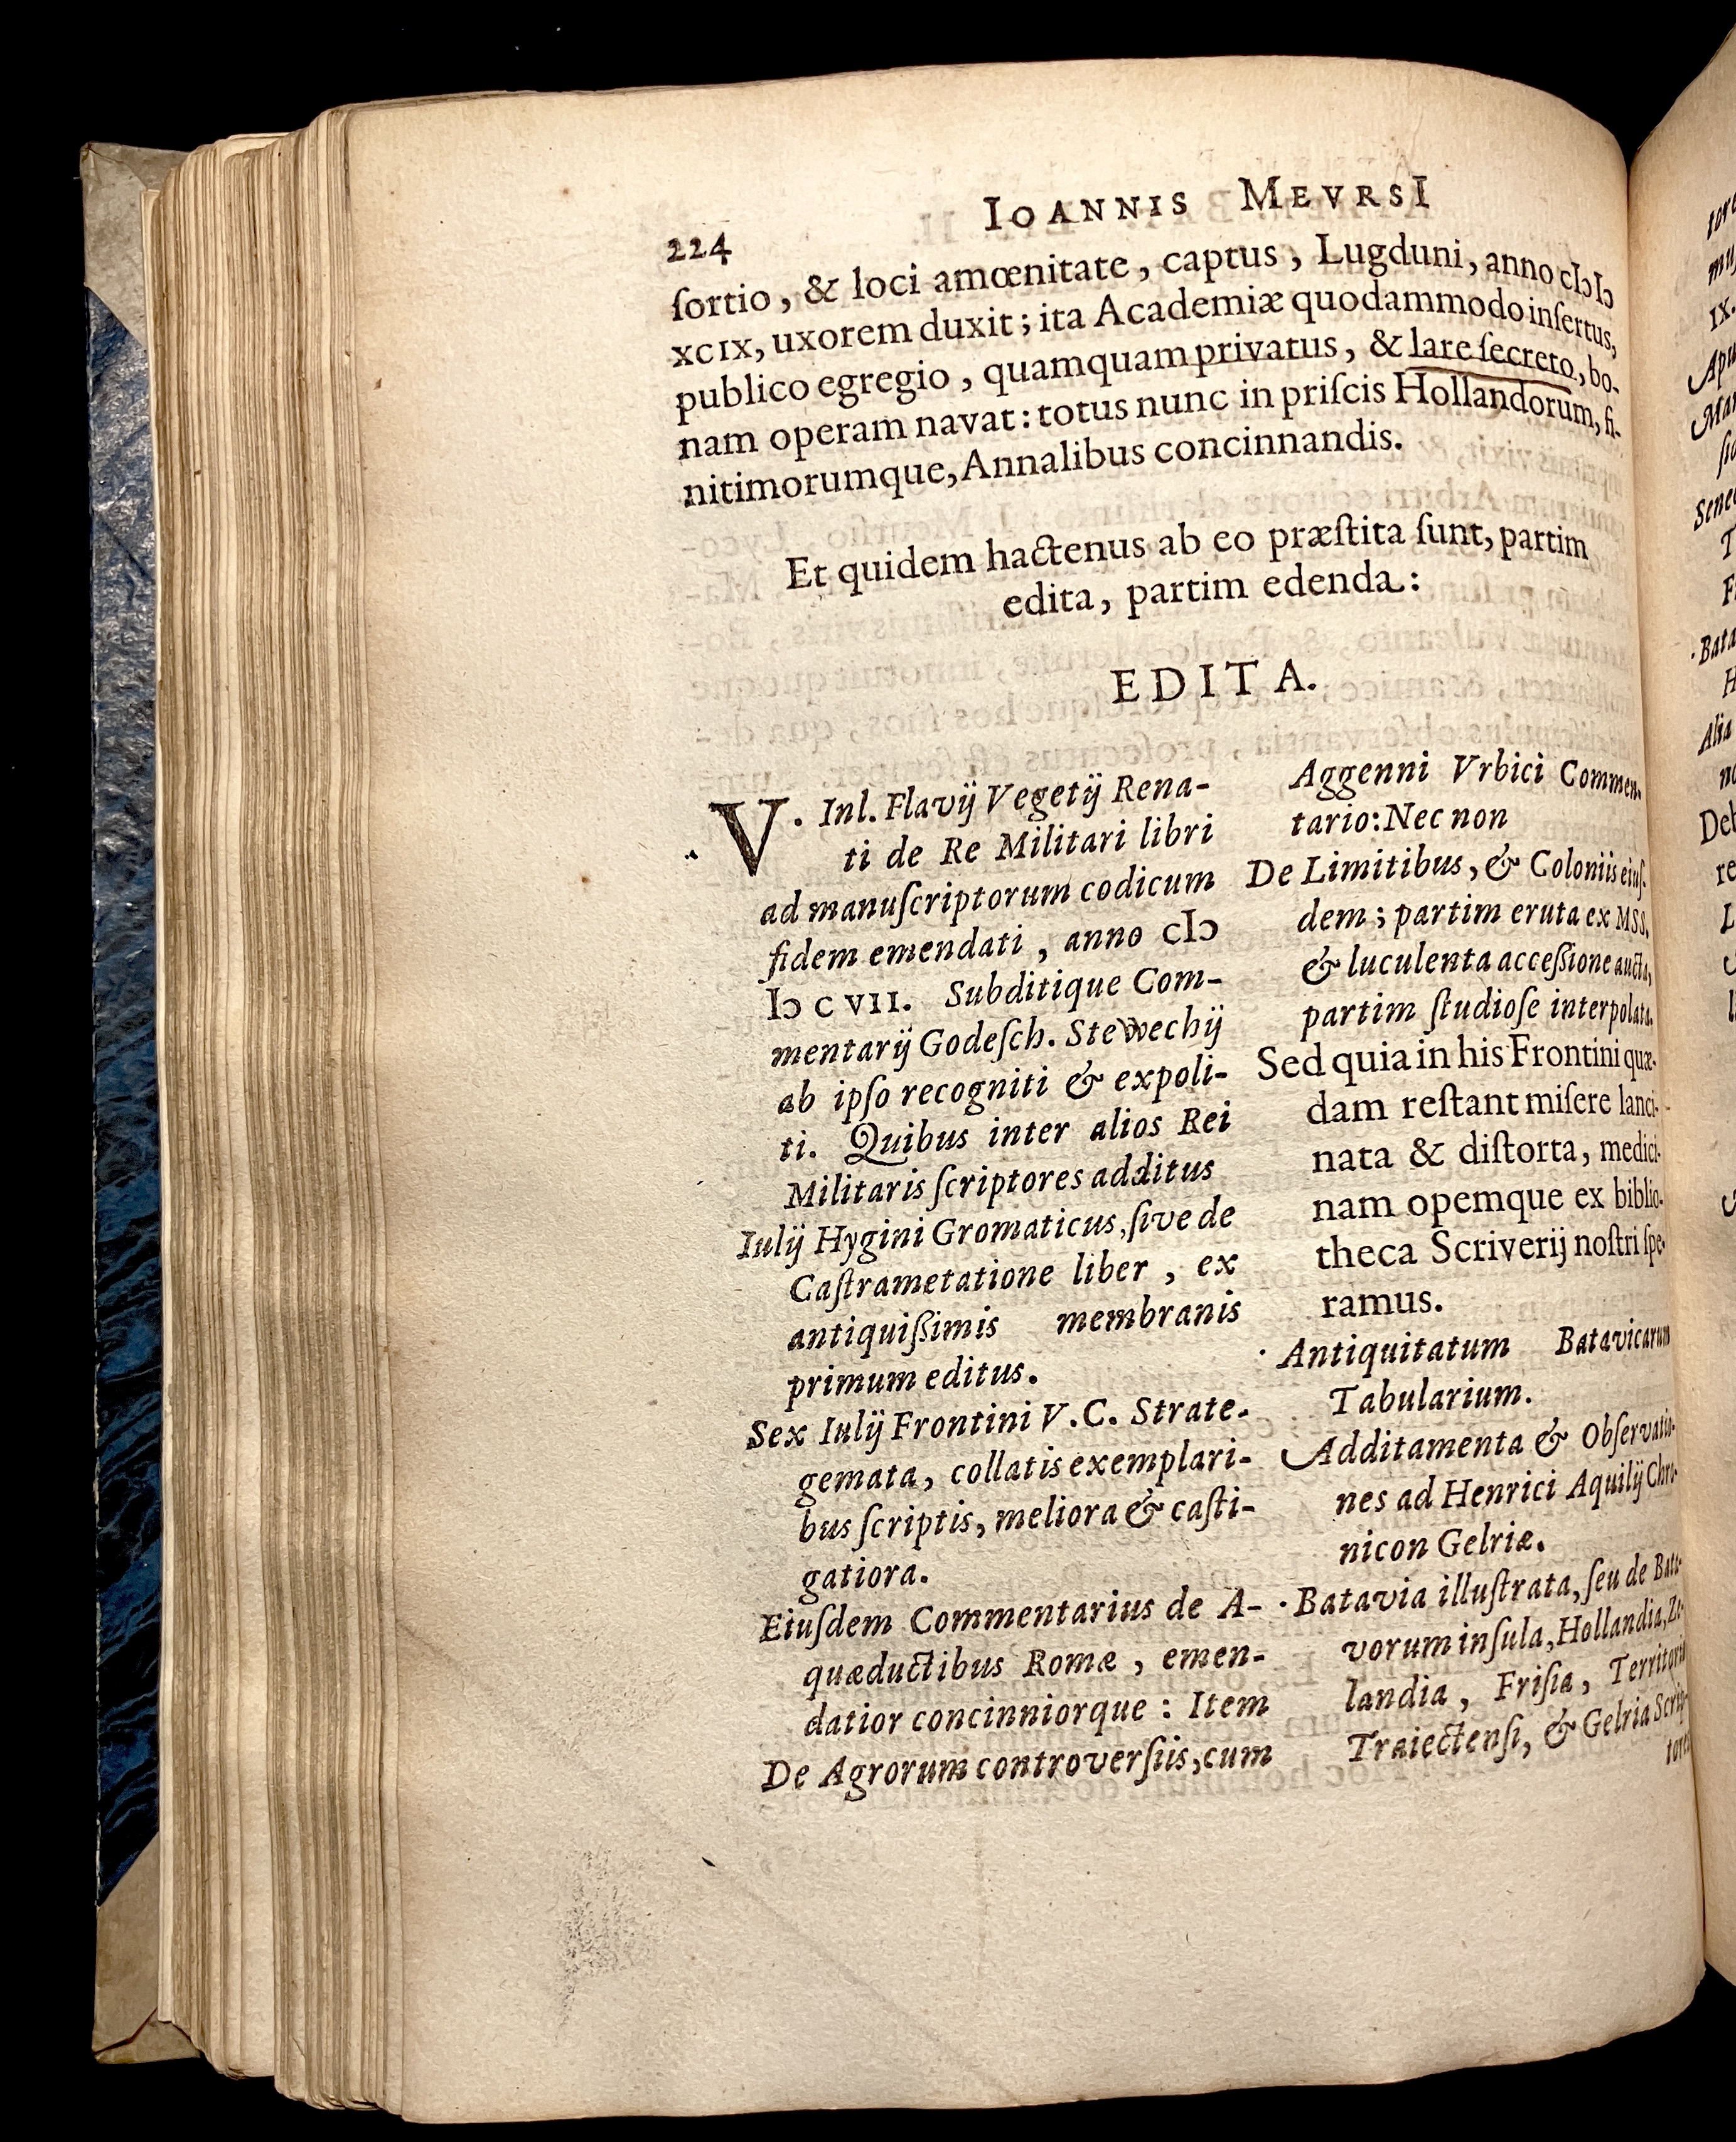 224
IOANNIS MEVRSI
ſortio, & loci amœnitate, captus, Lugduni, anno cIↄIↄ
XCIX, uxorem duxit; ita Academiæ quodammodo inſertus,
publico egregio, quamquam privatus, & lare ſecreto, bo-
nam operam navat: totus nunc in priſcis Hollandorum, fi-
nitimorumque, Annalibus concinnandis.
Et quidem hactenus ab eo præſtita ſunt, partim
edita, partim edenda:
EDITA.
V. Inl. Flavij Vegetij Rena-
ti de Re Militari libri
ad manuſcriptorum codicum
fidem emendati, anno cIↄ
Iↄ C VII. Subditique Com-
mentarij Godeſch. Stewechij
ab ipſo recogniti & expoli-
ti. Quibus inter alios Rei
Militaris ſcriptores additus
Iulij Hygini Gromaticus, ſive de
Caſtrametatione liber, ex
antiquiſſimis membranis
primum editus.
Sex Iulij Frontini V.C. Strate-
gemata, collatis exemplari-
bus ſcriptis, meliora & caſti-
gatiora.
Eiuſdem Commentarius de A-
quæductibus Romæ, emen-
datior concinniorque: Item
De Agrorum controverſiis, cum
Aggenni Vrbici Commen-
tario: Nec non
De Limitibus, & Coloniis eiuſ-
dem; partim eruta ex MSS.
& luculenta acceſſione aucta,
partim ſtudioſe interpolata.
Sed quia in his Frontini quæ-
dam reſtant miſere lanci-
nata & diſtorta, medici-
nam opemque ex biblio-
theca Scriverij noſtri ſpe-
ramus.
Antiquitatum Batavicarum
Tabularium.
Additamenta & Obſervatio-
nes ad Henrici Aquilij Chro-
nicon Gelriæ.
Batavia illuſtrata, ſeu de Bata-
vorum inſula, Hollandia, Ze-
landia, Friſia, Territorio
Traiectenſi, & Gelria Scrip-
tores